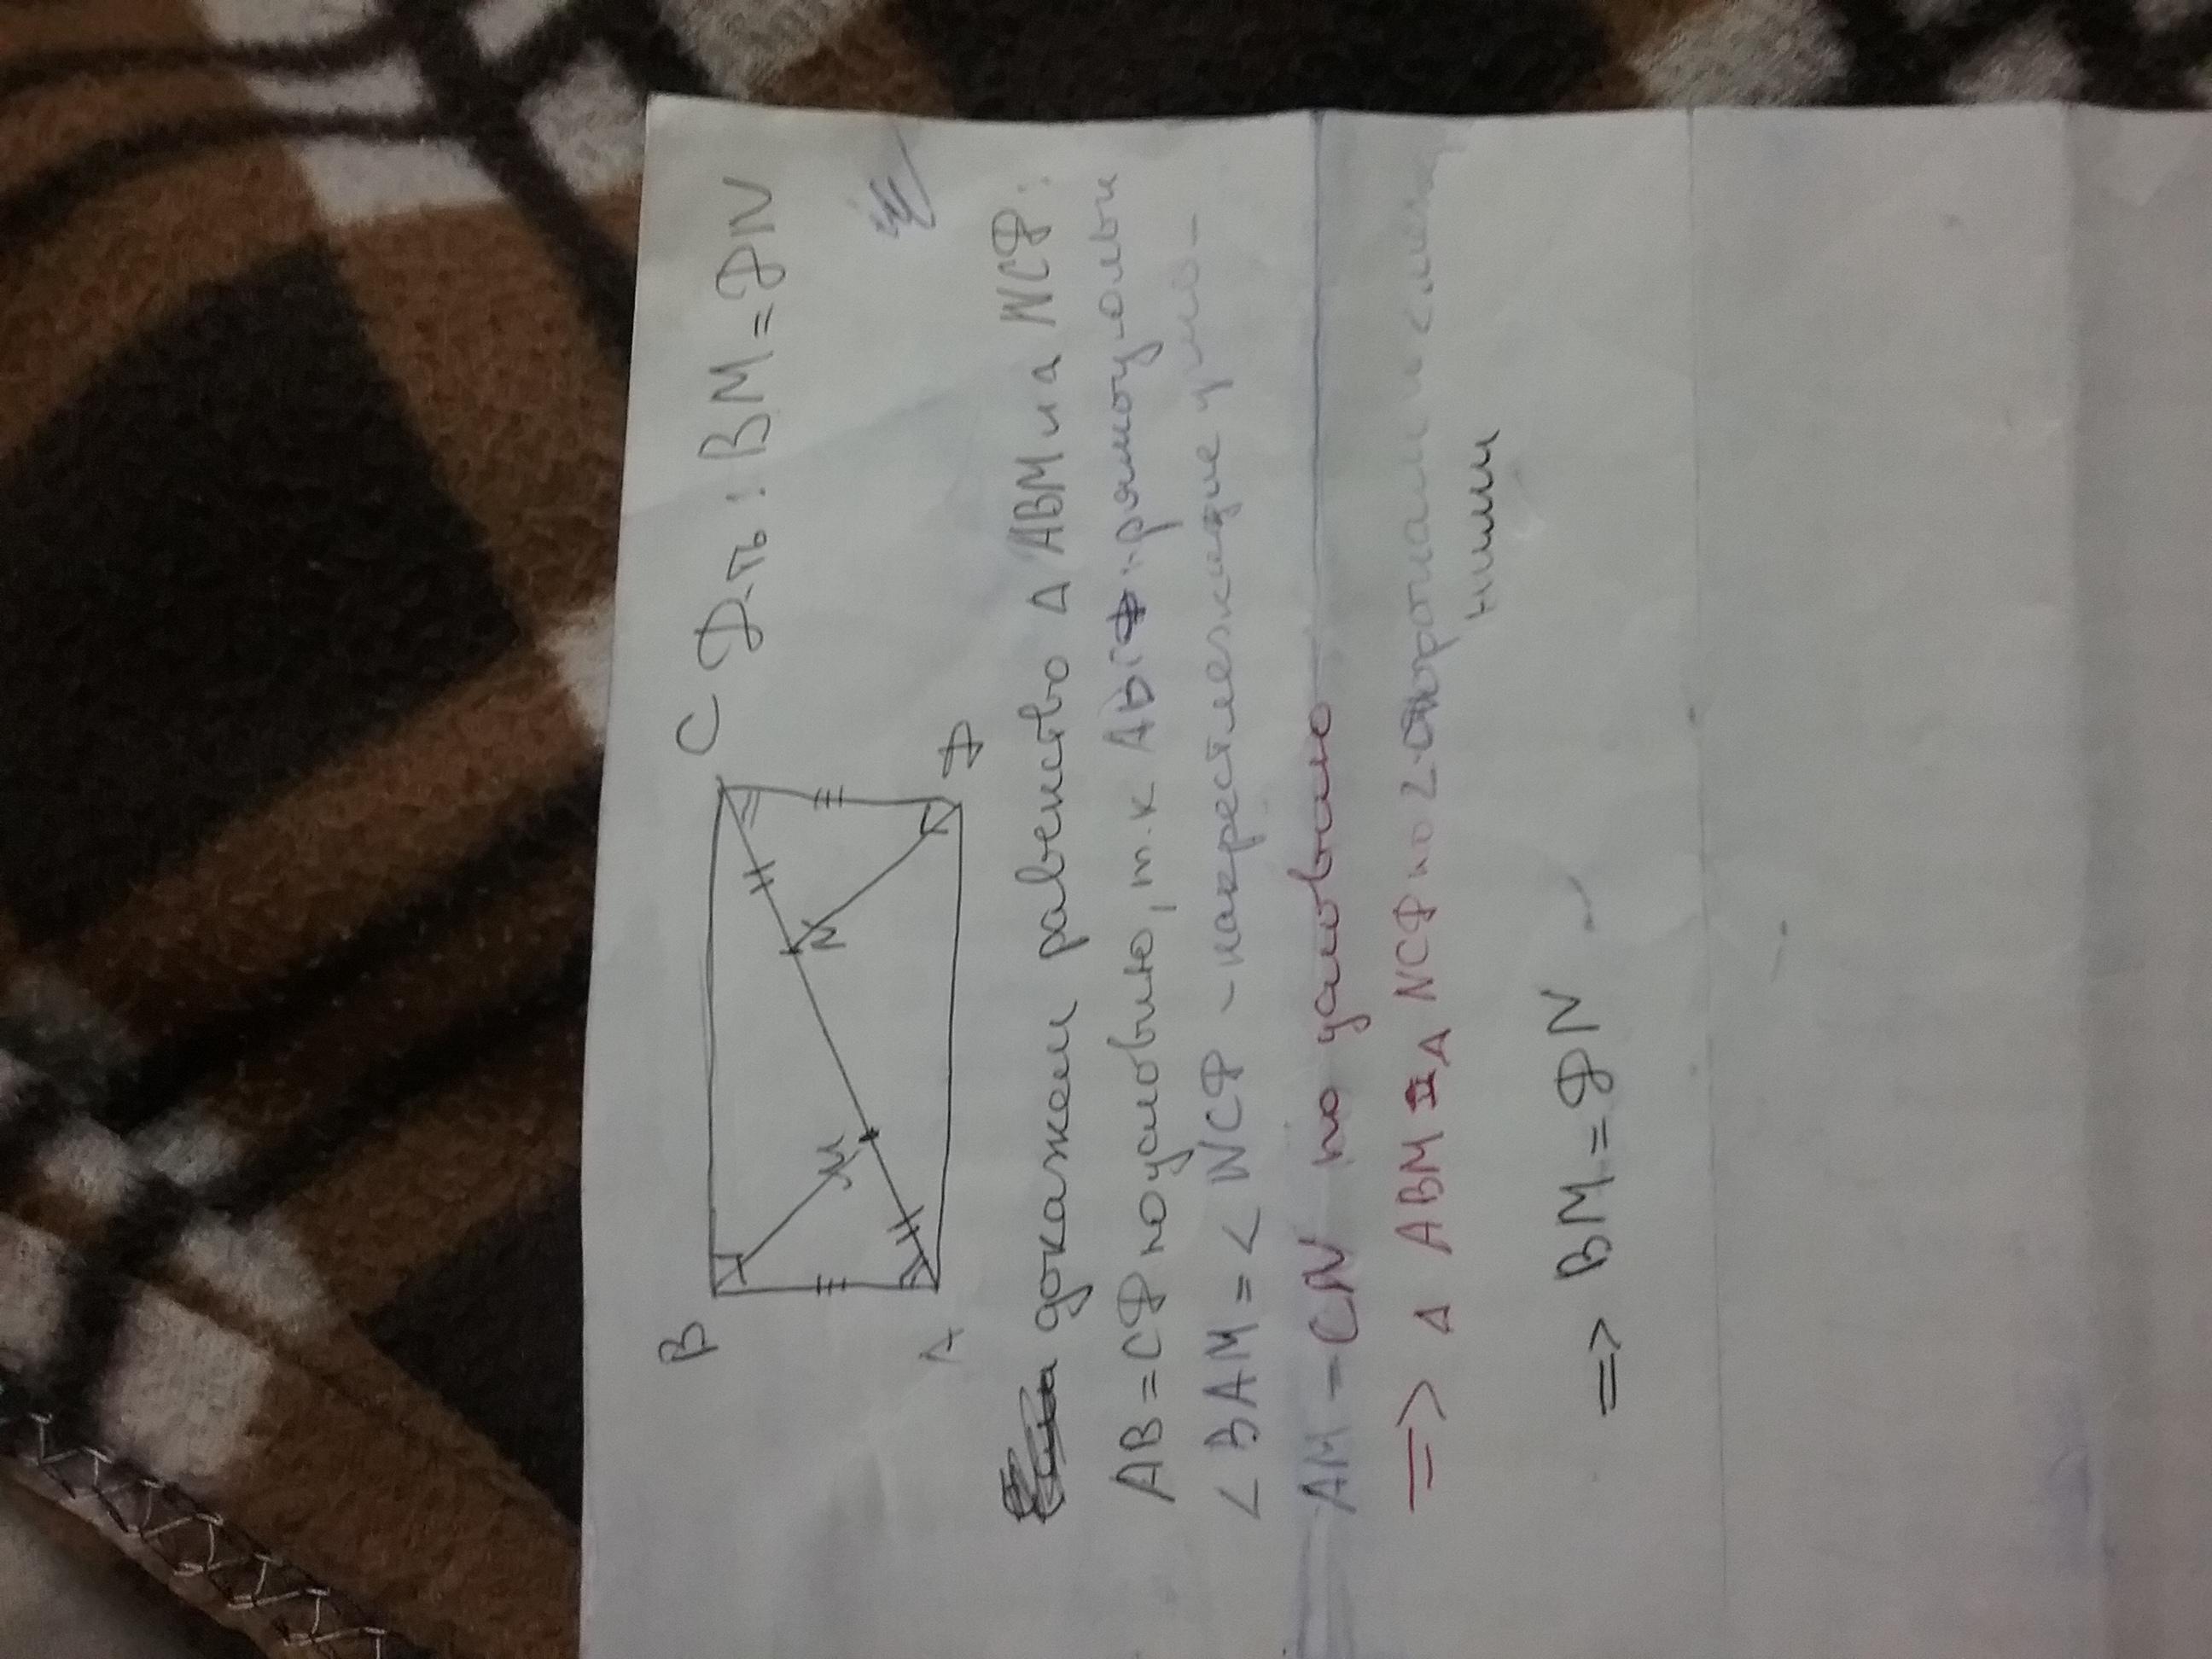 B
C
Д-ть: BM = DN
M
N
A
D
докажем равенство Δ ABM и Δ NCD:
AB = CD по условию, т.к ABCD прямоугольн
< BAM = < NCD - накрестлежащие уг
AM = CN по условию
=> Δ ABM = Δ NCD по 2 сторонам и
ними
=> BM = DN